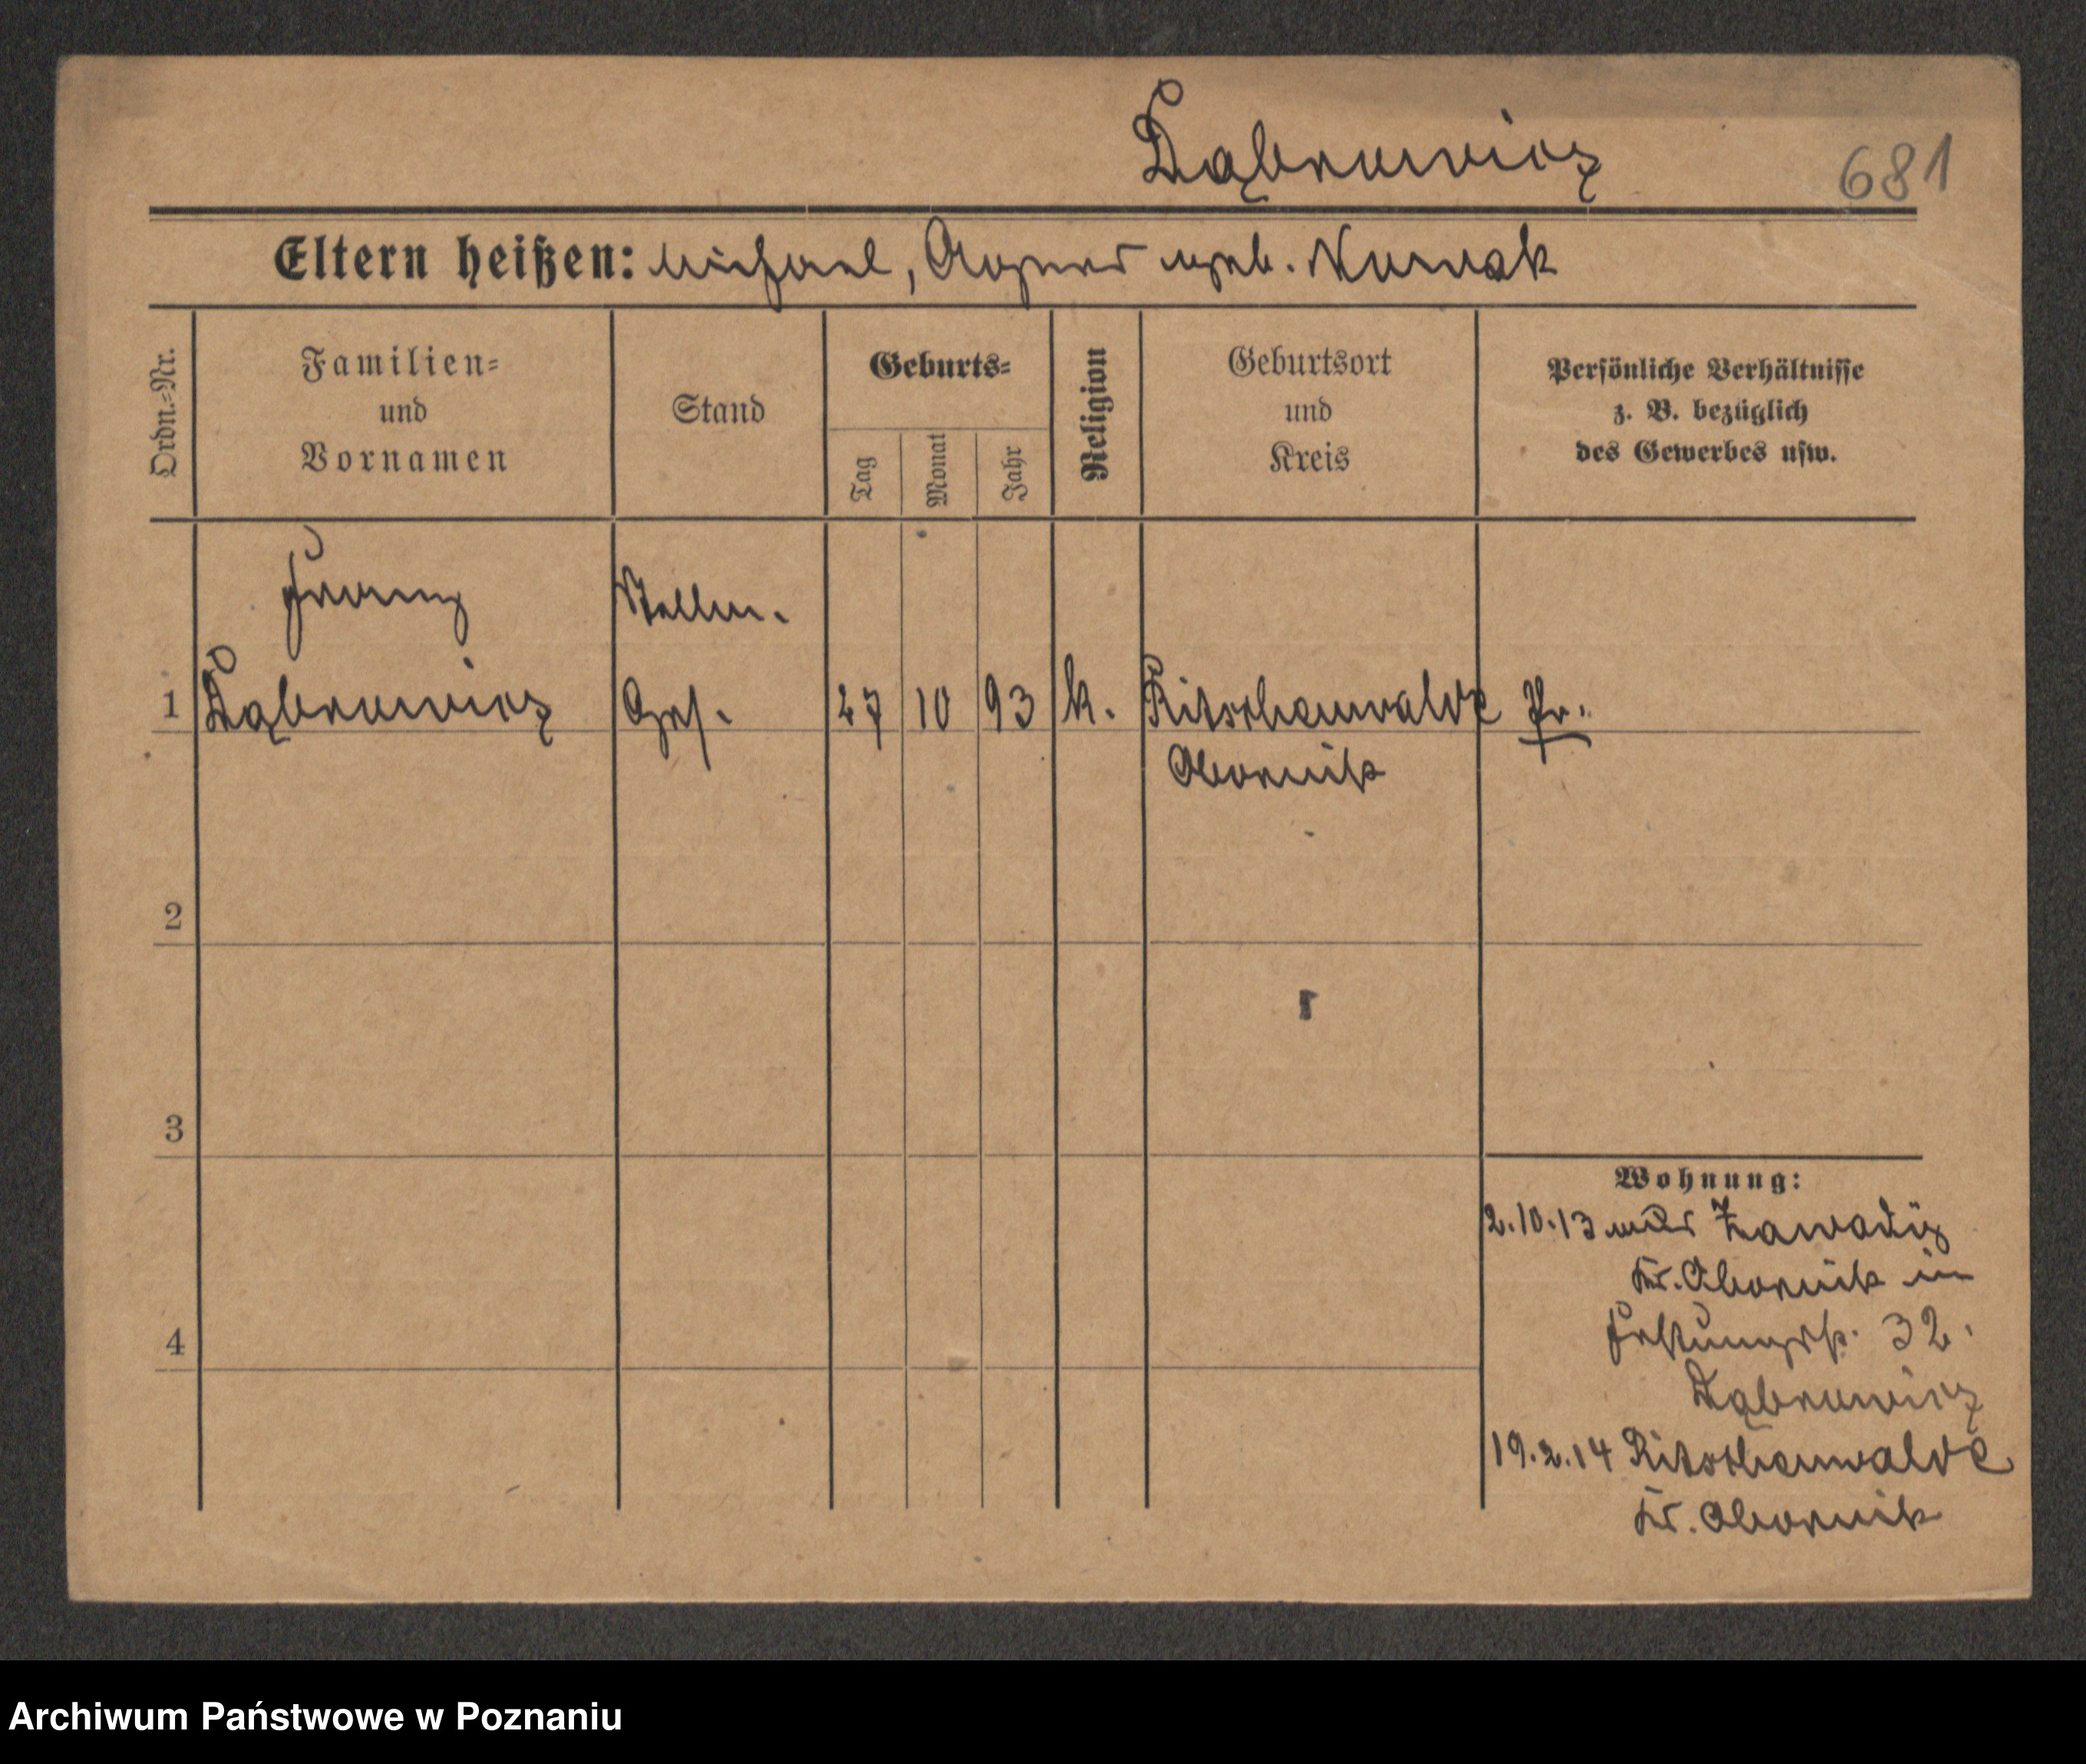 Dąbrowicz
681
Eltern heißen: Michael, Agnes geb. Nowak
Ordn.=Nr.
Familien=
und
Vornamen
Stand
Geburts=
Tag
Monat
Jahr
Religion
Geburtsort
und
Kreis
Persönliche Verhältnisse
z. B. bezüglich
des Gewerbes usw.
Franz
Stellm.
1 Dąbrowicz Ges. 27 10 93 k. Ritschenwalde Pr.
Obornik
2
3
4
Wohnung:
2.10.13 aus Zawadig
Kr. Obornik in
Festungsstr. 32.
Dąbrowicz
19.2.14 Ritschenwalde
Kr. Obornik
Archiwum Państwowe w Poznaniu